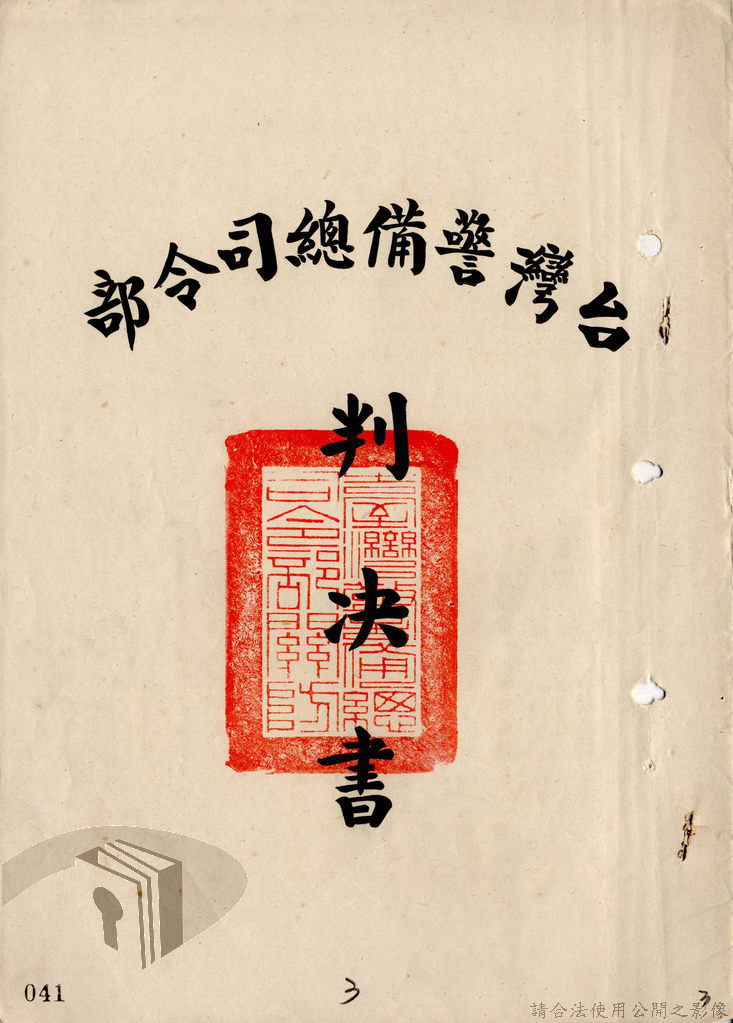 台灣警備總司令部
判決書
臺灣警備總
司令部關防
041
3
3
請合法使用公開之影像